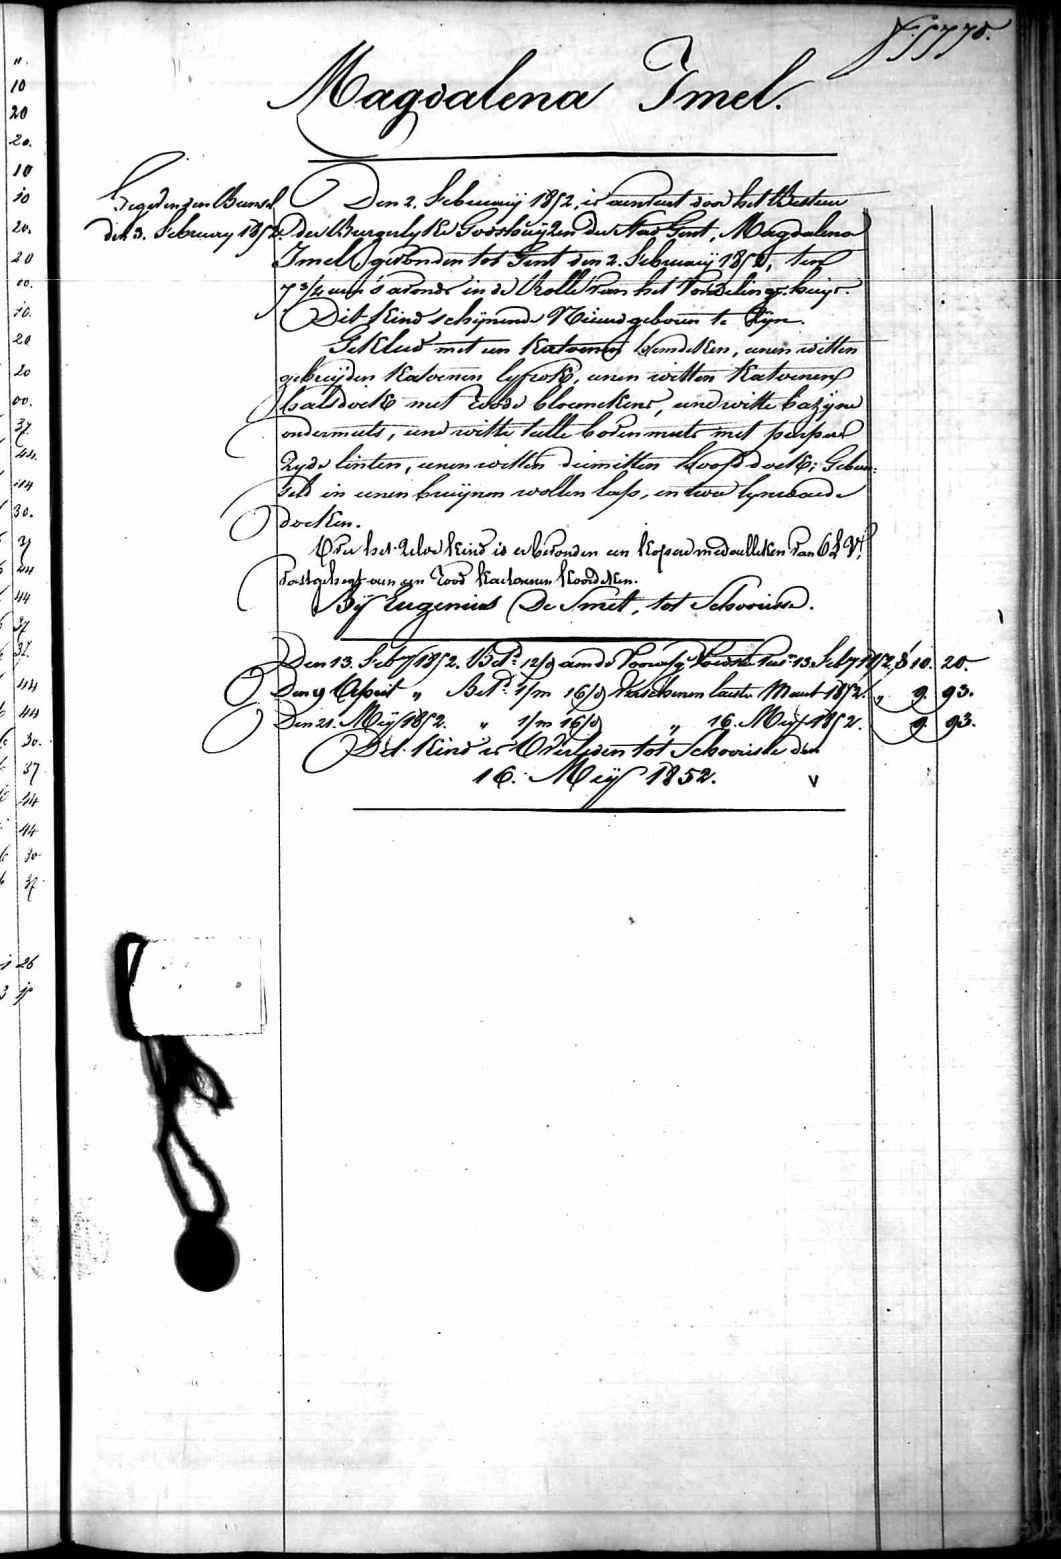 Magdalena Imel.
den 3. February 1852.
Den 2. February 1852, is aenveert door het Bestuer
der Burgerlyke Godshuyzen der Stad Gent, Magdalena
Imel, gevonden tot Gent den 2. February 1852, ten
7 3/4 uren 's avonds in de Rolle van het Vondelingshuys.
Dit kind schynende Nieuwgeboren te Zyn.
Gekleed met een Katoenen hemdeken, eenen witten
gebreyden Katoenen lyfrok, eenen witten Katoenen
halsdoek met roode bloemekens, eene witte bazyne
ondermuts, eene witte tulle bovenmuts met purpere
Zyde linten, eenen witten diemitten hoofddoek; Gebun:
deld in eenen bruynen wollen lap, en twee lynwaede
doeken.
Over het zelve kind is er bevonden een kopere medaelleken van
vastgehegt aen een rood katoenen koordeken.
By Eugenius De Smet, tot Schoorisse.
Den 13. Feb.y 1852. Bet.d 12/9 aen de 13. Feb.y 1852. 10. 20.
Den 9 April „ Bet.d 1/m 16/9 Verschenen laetste Maert 1852. „ 9. 93.
Den 21. Mey 1852. „ 1/m 16/9 „ 16. Mey 1852. 9. 93.
Dit Kind is Overleden tot Schoorisse den
16. Mey 1852.